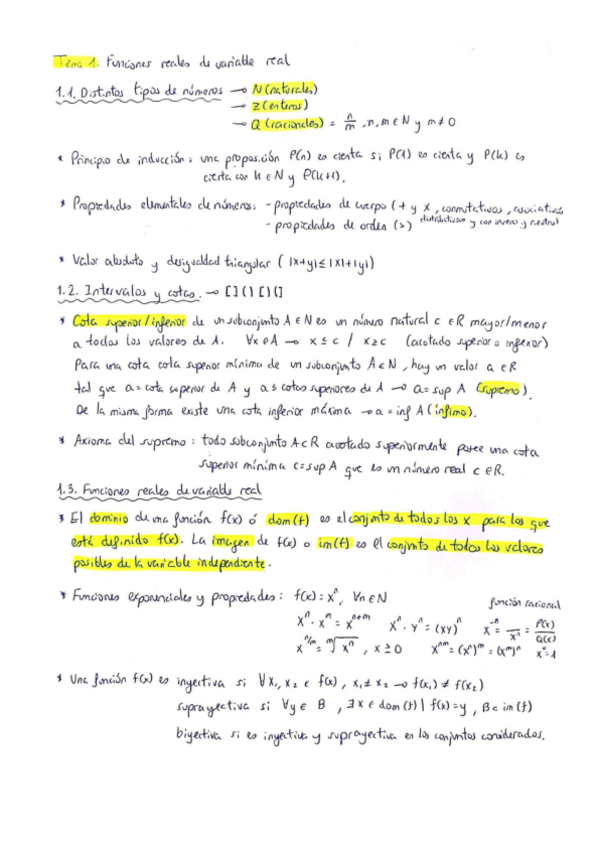 Tema 1: Funciones reales de variable real
1.1. Distintos tipos de números → N (naturales)
→ Z (enteros)
→ Q (racionales) = n/m , n, m ∈ N y m ≠ 0
* Principio de inducción: una proposición P(n) es cierta si P(1) es cierta y P(k) es
cierta con k ∈ N y P(k+1).
* Propiedades elementales de números: - propiedades de cuerpo (+ y x, conmutativas, asociativas
distributivas y con inverso y neutro)
- propiedades de orden (≥)
* Valor absoluto y desigualdad triangular ( |x+y| ≤ |x|+|y|)
1.2. Intervalos y cotas. → [ ] ( ) [ ) ( ]
* Cota superior/inferior de un subconjunto A ∈ N es un número natural c ∈ R mayor/menor
a todos los valores de A. ∀x ∈ A → x ≤ c / x ≥ c (acotado superior o inferior)
Para una cota cota superior mínima de un subconjunto A ∈ N, hay un valor a ∈ R
tal que a = cota superior de A y a ≤ cotas superiores de A → a = sup A (supremo).
De la misma forma existe una cota inferior máxima → a = inf A (ínfimo).
* Axioma del supremo: todo subconjunto A ⊂ R acotado superiormente posee una cota
superior mínima c = sup A que es un número real c ∈ R.
1.3. Funciones reales de variable real
* El dominio de una función f(x) ó dom(f) es el conjunto de todos los x para los que
está definido f(x). La imagen de f(x) o im(f) es el conjunto de todos los valores
posibles de la variable independiente.
* Funciones exponenciales y propiedades: f(x) = xⁿ, ∀n ∈ N
función racional
xⁿ · xᵐ = xⁿ⁺ᵐ xⁿ · yⁿ = (xy)ⁿ x⁻ⁿ = 1/xⁿ = P(x)/Q(x)
x^(n/m) = ᵐ√xⁿ , x ≥ 0 xⁿᵐ = (xⁿ)ᵐ = (xᵐ)ⁿ x⁰ = 1
* Una función f(x) es inyectiva si ∀x₁, x₂ ∈ f(x), x₁ ≠ x₂ → f(x₁) ≠ f(x₂)
suprayectiva si ∀y ∈ B , ∃x ∈ dom(f) | f(x) = y , B ⊂ im(f)
biyectiva si es inyectiva y suprayectiva en los conjuntos considerados.